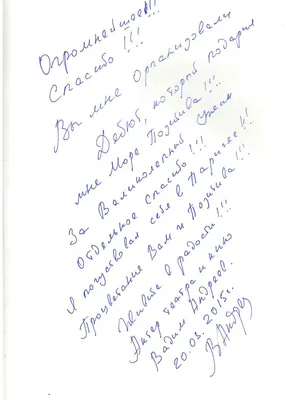 Огромнейшее!!!
Спасибо!!!
Вы мне Организовали
Дебют, который подарил
мне Море Позитива!!!
За Великолепный Ужин
отдельное спасибо!!!
Я почувствовал себя в Париже!!!
Процветания Вам и Позитива!!!
Живите в радости!!!
Актер театра и кино
Вадим Андреев.
20.03.2015г.